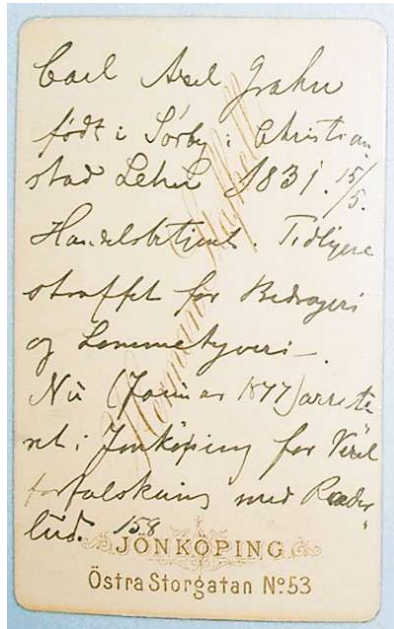 Carl Axel Grahn
født i Sörby i Christian
stad Lehn 1831. 15/5.
Handelsbetjent. Tidligere
straffet for Bedrageri
og Lommetyveri –
Nu (Januar 1877) arreste
ret i Jonköping for Vexel
forfalskning med
lud. 158
JÖNKÖPING
Östra Storgatan No. 53